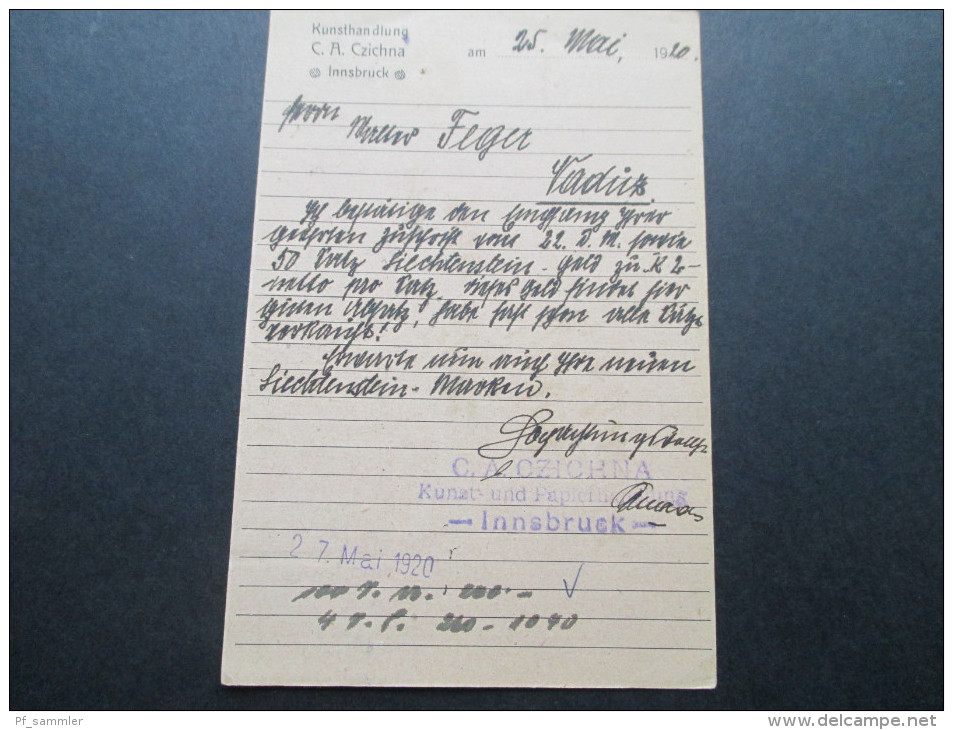 Kunsthandlung
C. A. Czichna
Innsbruck
am 25. Mai, 1920.
Herrn
Walter Feger
Vaduz.
Ich bestätige den Empfang Ihrer
geehrten Zuschrift vom 22. d. M. sowie
50 Satz Liechtenstein-Geld zu K 2-
netto pro Satz. Dieses Geld findet hier
guten Absatz, habe fast schon alle Sätze
verkauft!
Erwarte nun auch Ihre neuen
Liechtenstein-Marken.
Hochachtungsvollst
C. A. CZICHNA
Kunst- und Papierhandlung
— Innsbruck —
27. Mai 1920
4 260- 1040
Pf_sammler
www.delcampe.net